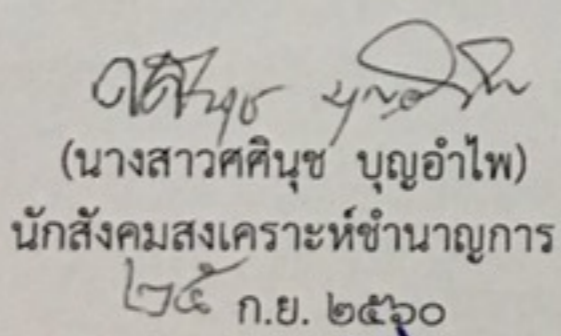 ศศินุช บุญอำไพ
(นางสาวศศินุช บุญอำไพ)
นักสังคมสงเคราะห์ชำนาญการ
๒๕ ก.ย. ๒๕๖๐